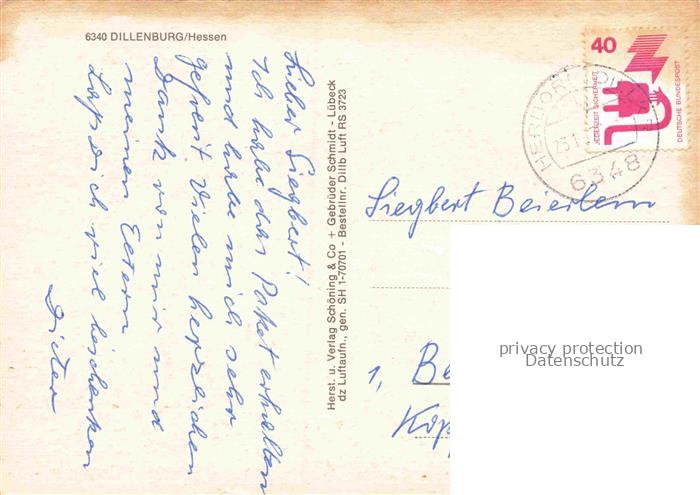 6340 DILLENBURG/Hessen
Lieber Siegbert!
Ich habe das Paket erhalten
und habe mich sehr
gefreut. Vielen herzlichen
Dank von mir und
meinen Eltern
viel
Dieter
Herst. u. Verlag Schöning & Co + Gebrüder Schmidt - Lübeck
dz Luftaufn., gen. SH 1-70701 - Bestellnr. Dillb Luft RS 3723
40
JEDERZEIT SICHERHEIT
DEUTSCHE BUNDESPOST
HERBORN
6348
Siegbert Beierlein
1, Be
Köp
privacy protection
Datenschutz